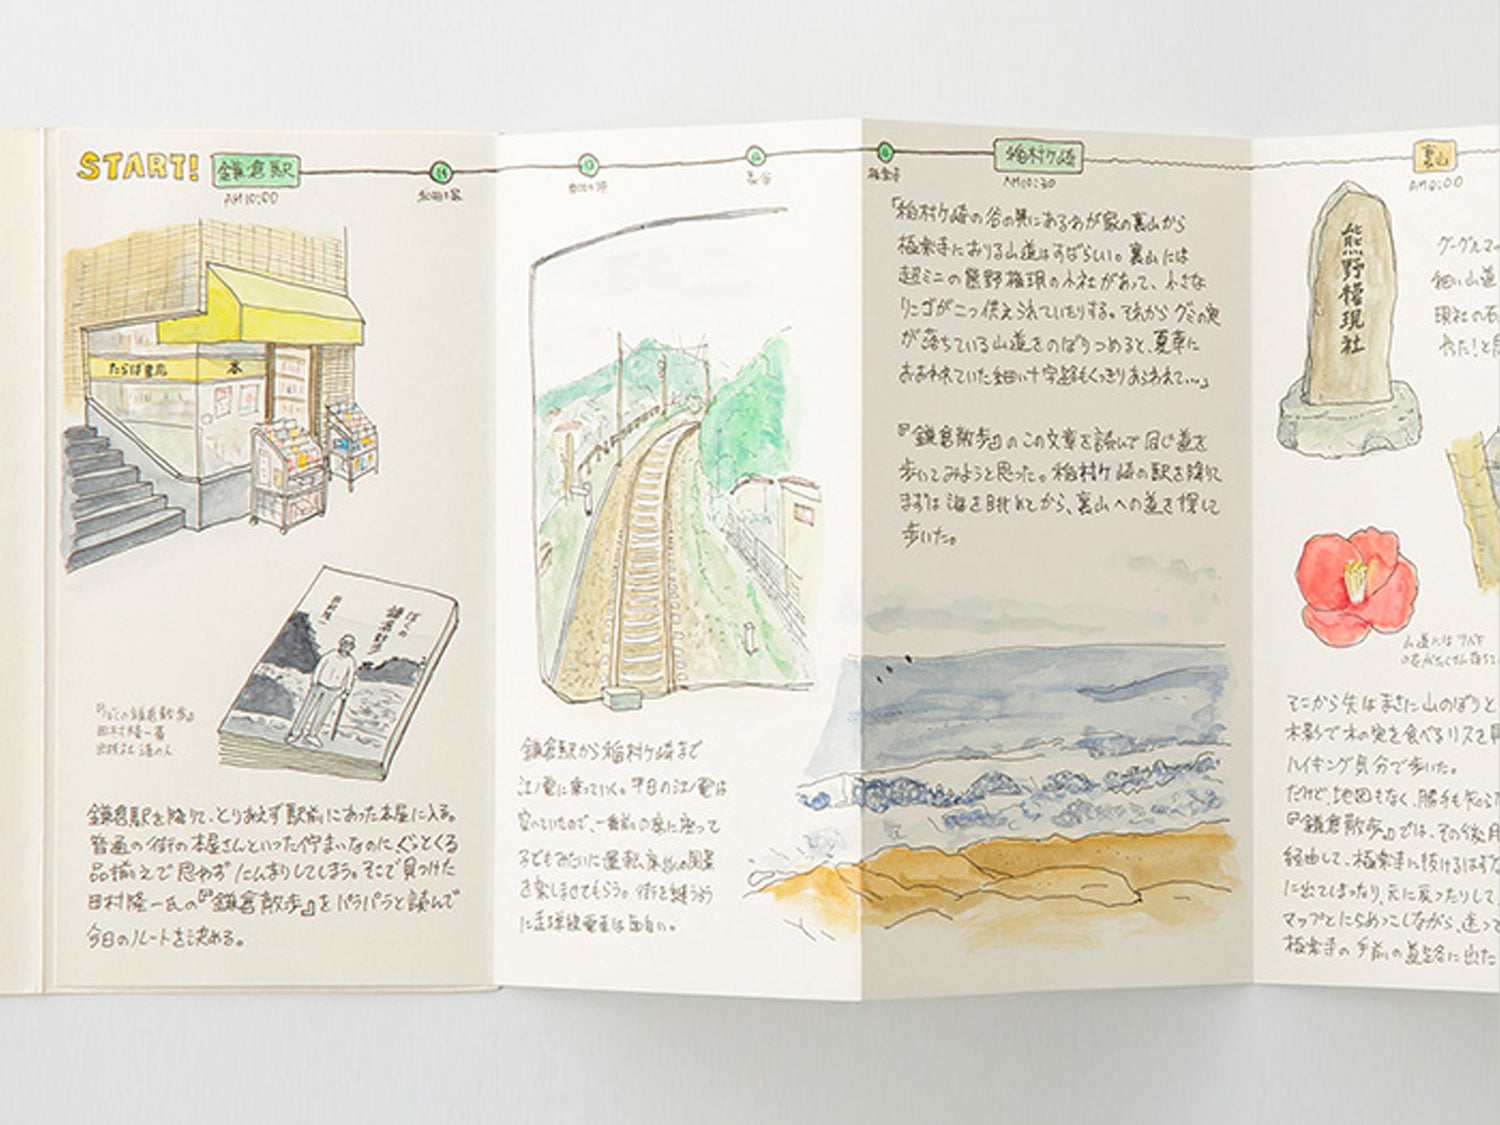 START!
鎌倉駅
AM10:00
和田塚
由比ヶ浜
長谷
極楽寺
稲村ヶ崎
AM10:30
裏山
たらば書房
本
ぼくの
鎌倉散歩
田村隆一
『ぼくの鎌倉散歩』
田村隆一著
出版社 港の人
鎌倉駅を降りて、とりあえず駅前にあった本屋に入る。
普通の街の本屋さんといった佇まいなのに、ぐっとくる
品揃えで思わずにんまりしてしまう。そこで見つけた
田村隆一氏の『鎌倉散歩』をパラパラと読んで
今日のルートを決める。
鎌倉駅から稲村ヶ崎まで
江ノ電に乗っていく。平日の江ノ電は
空いていたので、一番前の席に座って
子どもみたいに運転席からの風景
を楽しませてもらう。街を縫うよう
に走る単線電車は面白い。
「稲村ヶ崎の谷の奥にあるわが家の裏山から
極楽寺におりる山道はすばらしい。裏山には
超ミニの熊野権現の小社があって、小さな
リンゴが二つ供えられていたりする。それからグミの実
が落ちている山道をのぼりつめると、夏草に
おおわれていた細い十字路もくっきりあらわれて…」
『鎌倉散歩』のこの文章を読んで同じ道を
歩いてみようと思った。稲村ヶ崎の駅を降りて
まずは海を眺めてから、裏山への道を探して
歩いた。
熊野権現社
グーグルマッ
細い山道
現社の石
やた!と
山道にはツバキ
の花がたくさん落ちて
そこから先はまさに山のぼりと
木影で木の実を食べるリスを
ハイキング気分で歩いた。
だけど、地図もなく、勝手も知ら
『鎌倉散歩』では、その後
経由して、極楽寺に抜けるはず
に出てしまったり、元に戻ったりして、
マップとにらめっこしながら、迷って
極楽寺の手前の道路に出た